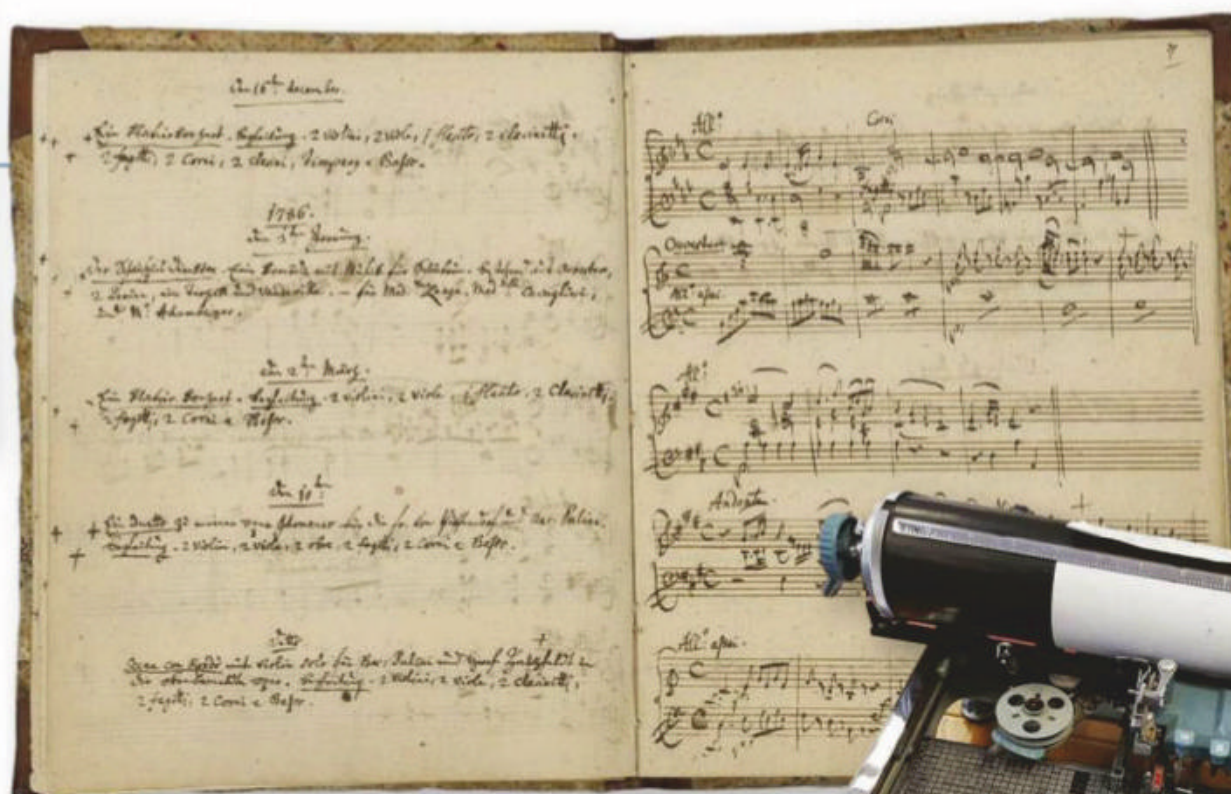 Den 16t december.
Ein klavier konzert. Begleitung. 2 violini, 2 viole, 1 flauto, 2 clarinetti,
2 fagotti, 2 Corni, 2 clarini, Timpany e Baßo.
1786.
den 3t Hornung.
Der Schauspiel direktor. Eine komödie mit Musick für Schönbrun. bestehend aus ouvertura,
2 Arien, ein Terzett und Vaudeville. – für Mad:me Lange, Mad:selle Cavaglieri,
und Mr. Adamberger.
den 2t März.
Ein klavier konzert. Begleitung. 2 violini, 2 viole, 1 flauto, 2 clarinetti,
2 fagotti, 2 Corni e Baßo.
Den 10t
Ein duetto zu meiner oper Idomeneo für die fr: von Puffendorf und Bar: Pulini.
Begleitung. 2 violini, 2 viole, 2 oboe, 2 fagotti, 2 Corni e Baßo.
Detto
Scena con Rondò mit violin solo für Bar: Pulini und graf Hatzfeld in
der obenbemelten oper. Begleitung. 2 violini, 2 viole, 2 clarinetti,
2 fagotti, 2 Corni e Baßo.
All:o Corni
Ouverture
All:o aßai
All:o
Andante.
All:o aßai.